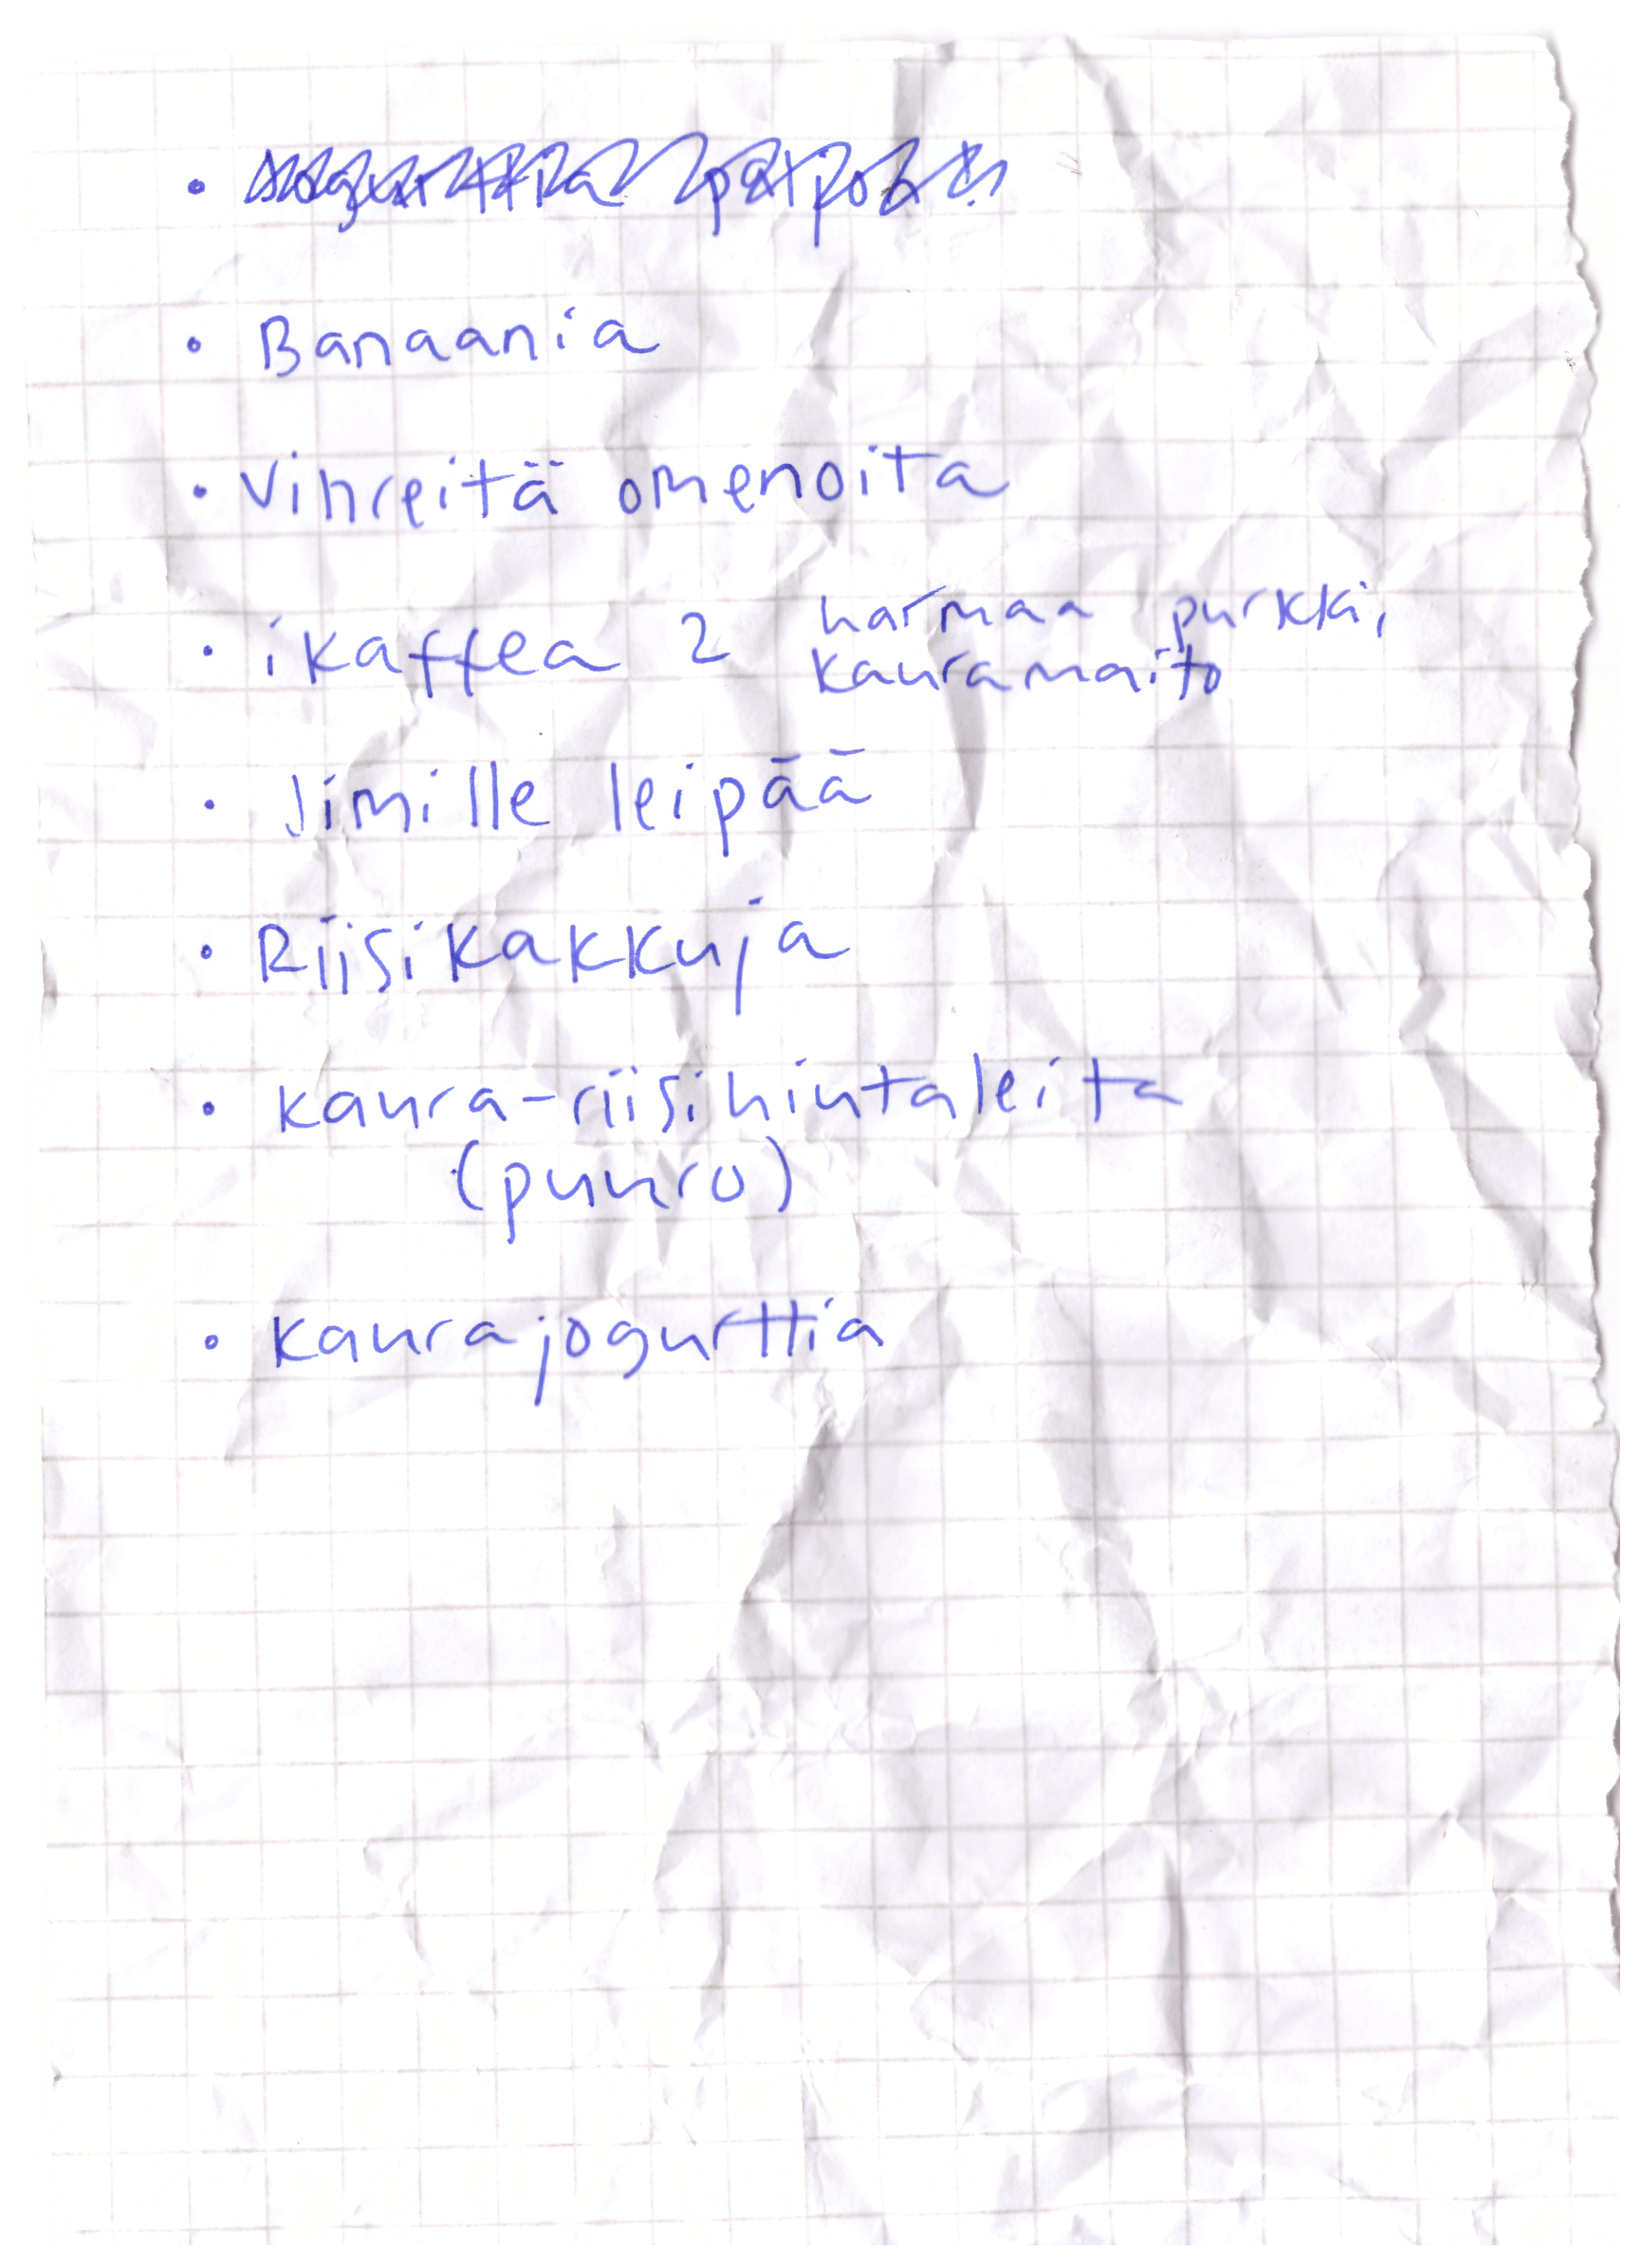 • Banaania
• Vihreitä omenoita
• ikaffea 2 harmaa purkki,
kauramaito
• Jimille leipää
• Riisikakkuja
• kaura-riisihiutaleita
(puuro)
• kaurajogurttia